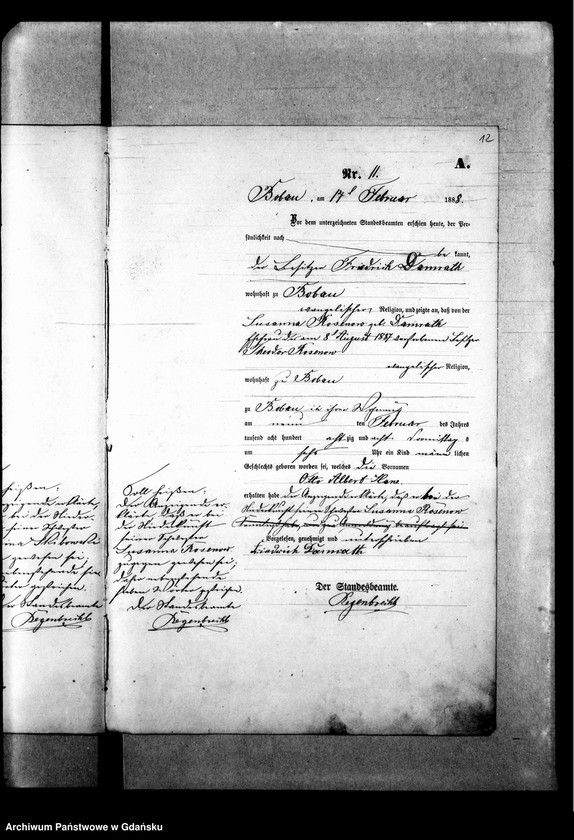 12
A.
Nr. 11.
Bobau, am 17t Februar 1888.
Vor dem unterzeichneten Standesbeamten erschien heute, der Per-
sönlichkeit nach
be kannt,
der Besitzer Friedrich Damrath
wohnhaft zu Bobau
evangelischer Religion, und zeigte an, daß von der
Susanna Rosenow geb. Damrath
Ehefrau des am 8t August 1887 verstorbenen Besitzer
Theodor Rosenow
evangelischer Religion,
wohnhaft zu Bobau
zu Bobau in ihrer Wohnung
am den Februar des Jahres
tausend acht hundert acht zig und acht Vormittag s
um sechs Uhr ein Kind männ lichen
Geschlechts geboren worden sei, welches die Vornamen
Otto Albert
erhalten habe. Der Anzeigende erklärte, daß er bei der
Niederkunft seiner Schwester Susanna Rosenow
Vorgelesen, genehmigt und unterschrieben
Friedrich Damrath
Der Standesbeamte.
Regenbrecht
Soll heißen:
Der Anzeigende er-
klärte daß er bei
der Niederkunft
seiner Schwester
Susanna Rosenow
zugegen gewesen sei;
daher vorstehende
sieben Worte gestrichen.
Der Standesbeamte
Regenbrecht
heißen:
seiner Schwester
gewesen sei;
Standesbeamte
Regenbrecht
Archiwum Państwowe w Gdańsku